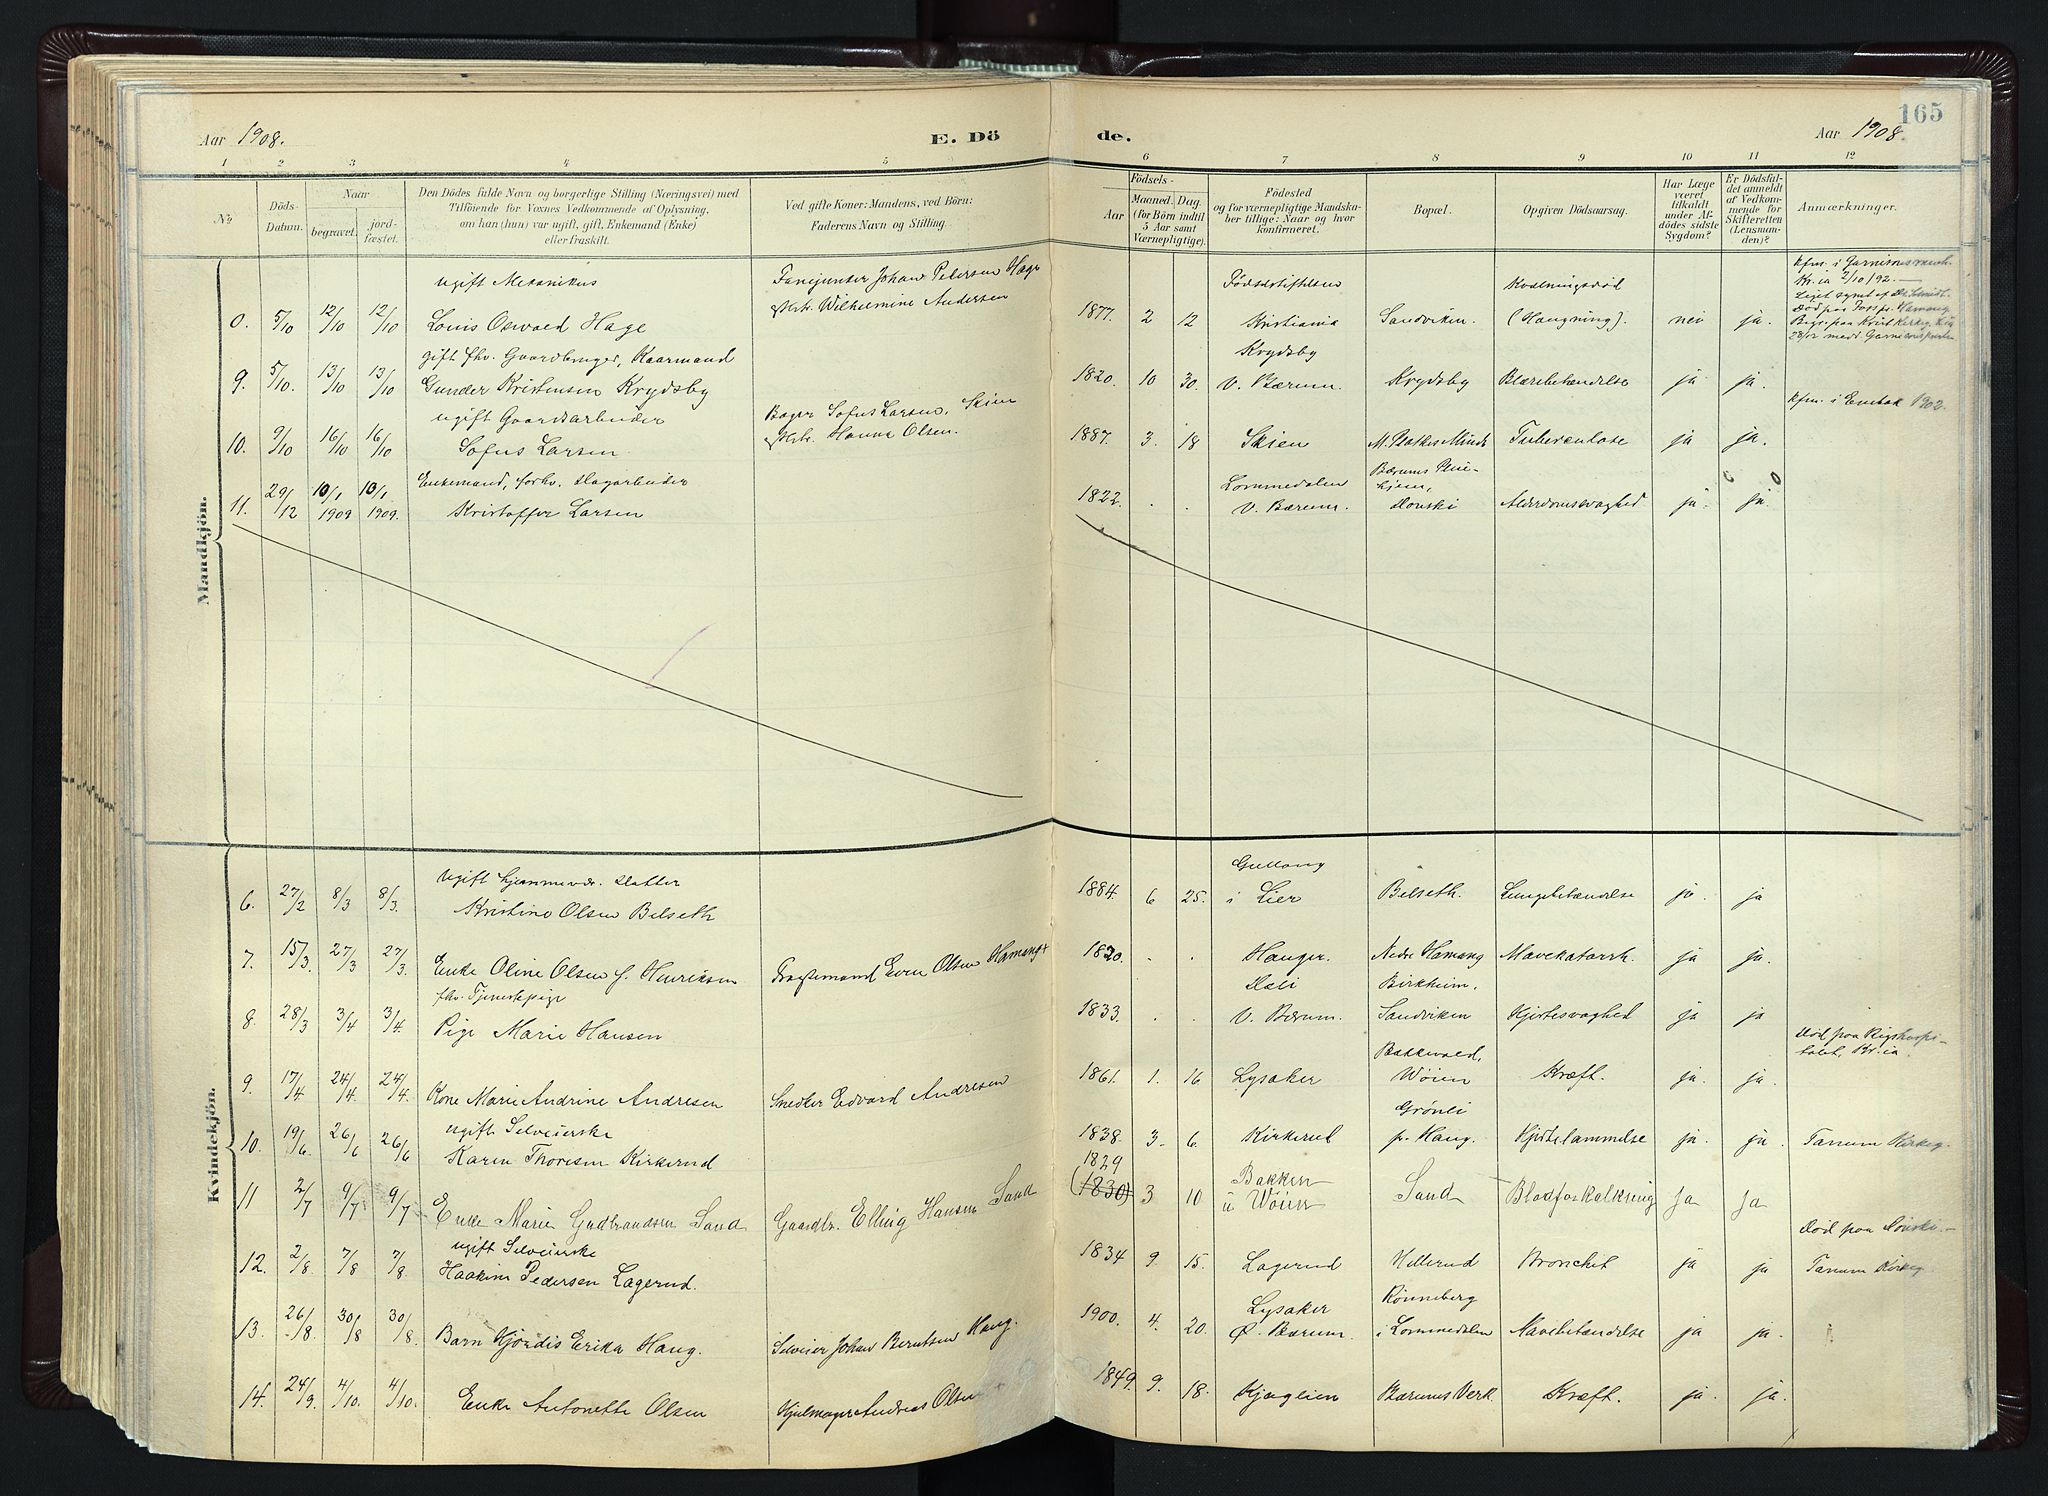 165
Aar 1908.
E. Dö
de.
Aar 1908.
1 2 3 4 5 6 7 8 9 10 11 12
No
Döds-Datum.
Naar
begravet.
jord-fæstet.
Den Dödes fulde Navn og borgerlige Stilling (Næringsvei) med
Tilföiende for Voxnes Vedkommende af Oplysning,
om han (hun) var ugift, gift, Enkemand (Enke)
eller fraskilt.
Ved gifte Koner: Mandens, ved Börn:
Faderens Navn og Stilling.
Födsels-
Aar
Maaned. (for Börn indtil 5 Aar samt Værnepligtige).
Dag.
Födested
og for værnepligtige Mandska-
ber tillige: Naar og hvor
konfirmeret.
Bopæl.
Opgiven Dödsaarsag.
Har Læge været tilkaldt under Af-dödes sidste Sygdom?
Er Dödsfal-det anmeldt af Vedkom-mende for Skifteretten (Lensman-den)?
Anmærkninger.
Mandkjön.
ugift Mekanikus Fanejunker Johan Petersen Hage Fødselsstiftelsen Kvælningsdød kfm. i Garnisonsmenh. Kr.ia 2/10 92.
8. 5/10 12/10 12/10 Louis Oswald Hage Wilhelmine Andersen 1877. 2 12 Kristiania Sandviken. (Hængning). nei ja.
gift fhv. Gaardbruger, Kaarmand Krydsby
9. 5/10. 13/10 13/10 Gunder Kristensen Krydsby 1820. 10 30. V. Bærum. Krydsby Blærebetændelse ja ja.
ugift Gaardsarbeider Bager Sofus Larsen, Skien kfm. i 1902.
10. 9/10 16/10 16/10 Sofus Larsen Hanna Olsen. 1887. 3. 18 Skien Tuberculose ja ja.
Enkemand, forhv. Dagarbeider Lommedalen Bærums Pleie-hjem,
11. 29/12 10/1 1909 10/1 1909. Kristoffer Larsen 1822. . . V. Bærum. Dønski Alderdomsvaghed ja. ja.
Kvindekjön.
ugift hjemmevær. Datter Gullaug
6. 27/2 8/3 8/3. Kristine Olsen Belseth 1884. 6 25. i Lier Belseth. Lungebetændelse ja. ja
7. 15/3. 27/3 27/3. Enke Oline Olsen f. Henriksen Fragtemand Even Olsen Hamang+ 1820. . . Hauger. Nedre Hamang Mavekatarrh. ja ja.
fhv. Tjenestepige Dæli Birkheim,
8. 28/3 3/4 3/4. Pige Marie Hansen 1833. . . V. Bærum. Sandviken Hjertesvaghed ja ja
Død paa Rigshospi-talet, Kr.ia.
9. 17/4 24/4. 24/4. Kone Marie Andrine Andresen Snedker Edvard Andresen 1861. 1. 16 Lysaker Bakkevold, Wøien Kræft. ja. ja.
ugift Selveierske Grønli
10. 19/6. 26/6 26/6 Karen Thoresen Kirkerud 1838. 3. 6. Kirkerud p. Haug. Hjertelammelse ja. ja. Tanum Kirkeg.
11 2/7 9/7 9/7 Enke Marie Gudbrandsen Sand Gaardbr. Elling Hansen Sand 1829 (1830) 3 10 Bakken u Wøien Sand Blodforkalkning Ja Ja
ugift Selveierske Død paa Dønski.
12. 2/8. 7/8 7/8. Haakine Pedersen Lagerud. 1834 9. 15. Lagerud Hellerud Bronchit ja ja Tanum Kirkeg.
13. 26/8. 30/8 30/8. Barn Hjørdis Erika Haug. Selveier Johan Berntsen Haug. 1900. 4. 20. Lysaker Ø. Bærum. Rønneberg i Lommedalen Mavebetændelse ja ja.
14. 24/9. 4/10. 4/10. Enke Antonette Olsen Hjulmager Andreas Olsen 1849. 9. 18. Bærums Verk. Kræft. ja. ja.